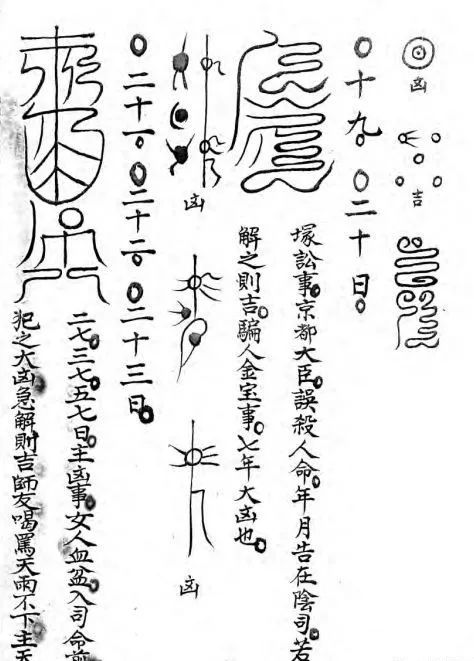 凶
吉
〇十九。〇二十日。
塚訟事。京都大臣。誤殺人命。年月告在陰司。若
解之則吉。騙人金宝事。七年大凶也。
凶
凶
〇二十一。〇二十二。〇二十三日。
二七三七五七日。主凶事。女人血盆入司命前
犯之大凶急解則吉師友喝罵天雨不下主天